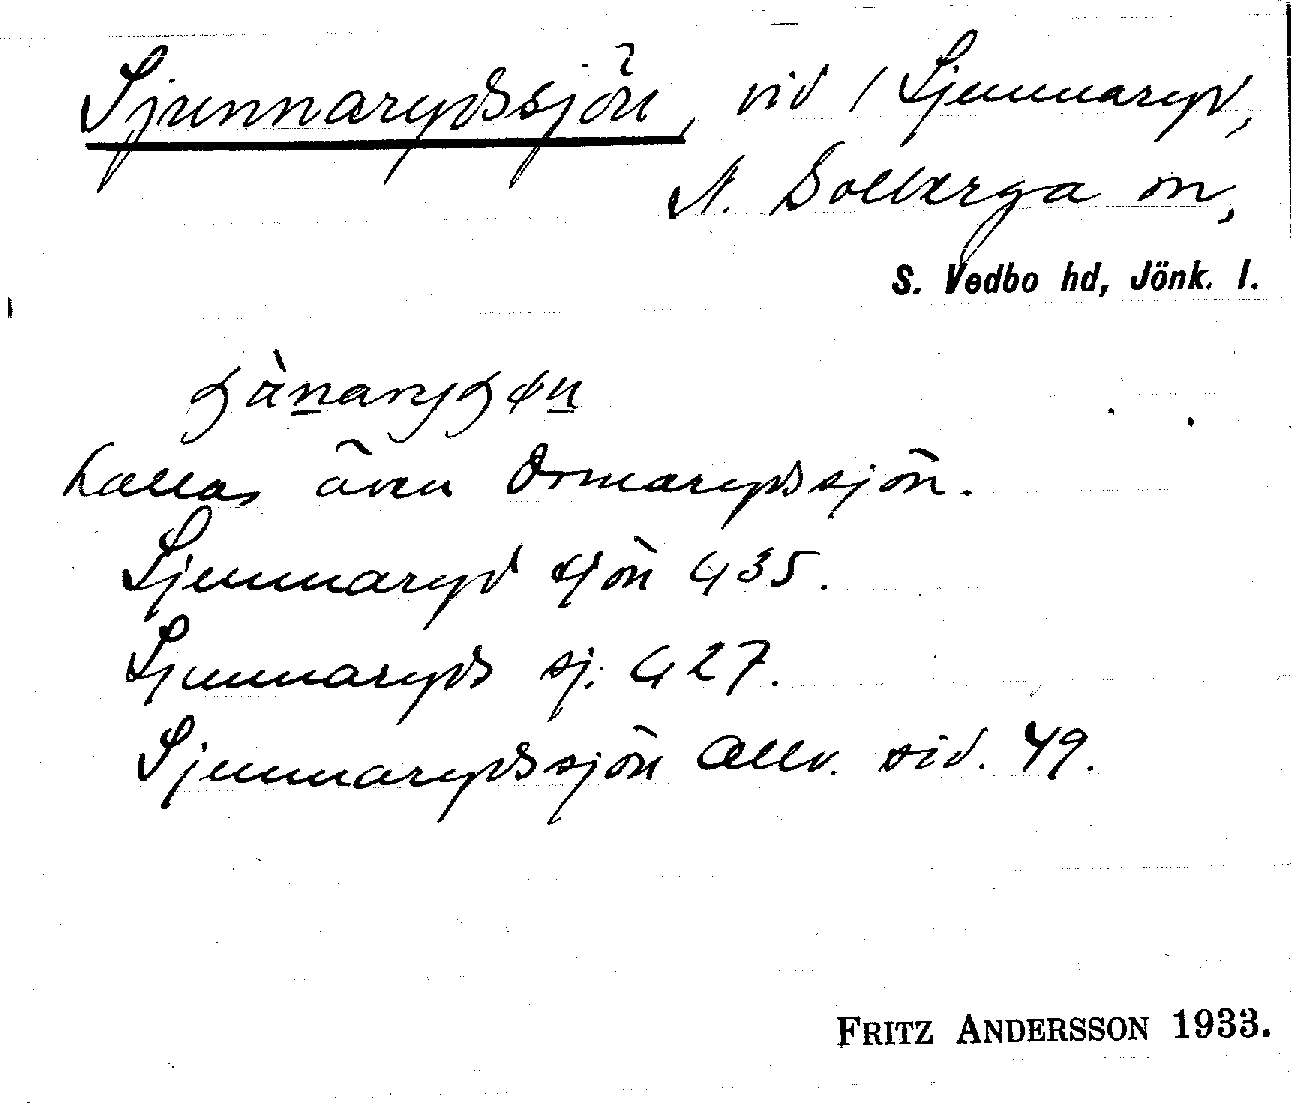 Sjunnarydssjön, vid / Sjunnaryd,
N. Solberga sn,
S. Vedbo hd, Jönk. l.
kallas även Ormarydssjön.
Sjunnaryd sjön G 35.
Sjunnaryds sj. G 27.
Sjunnarydssjön Allv. sid. 49.
FRITZ ANDERSSON 1933.